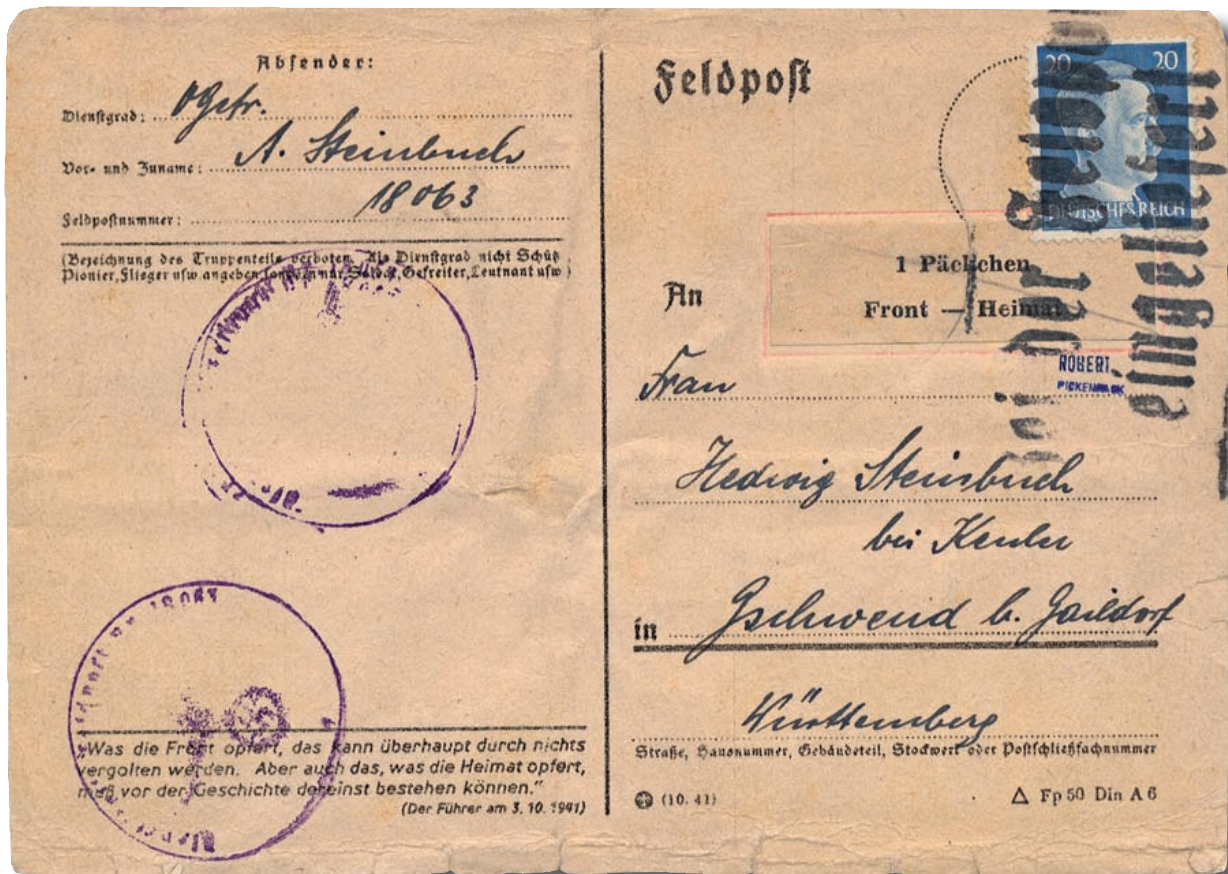 Absender:
Dienstgrad: OGefr.
Vor- und Zuname: A. Steinbuch
Feldpostnummer: 18063
(Bezeichnung des Truppenteils verboten. Als Dienstgrad nicht Schütz
Pionier, Flieger usw angeben, sondern nur Soldat, Gefreiter, Leutnant usw)
18063
"Was die Front opfert, das kann überhaupt durch nichts
vergolten werden. Aber auch das, was die Heimat opfert,
muß vor der Geschichte dereinst bestehen können."
(Der Führer am 3. 10. 1941)
Feldpost
20 20
DEUTSCHES REICH
1 Päckchen
Front — Heimat
ROBERT
PICKENPACK
An
Frau
Hedwig Steinbuch
bei
in Gschwend b. Gaildorf
Württemberg
Straße, Hausnummer, Gebäudeteil, Stockwerk oder Postschließfachnummer
(10. 41)
△ Fp 50 Din A 6
bei der